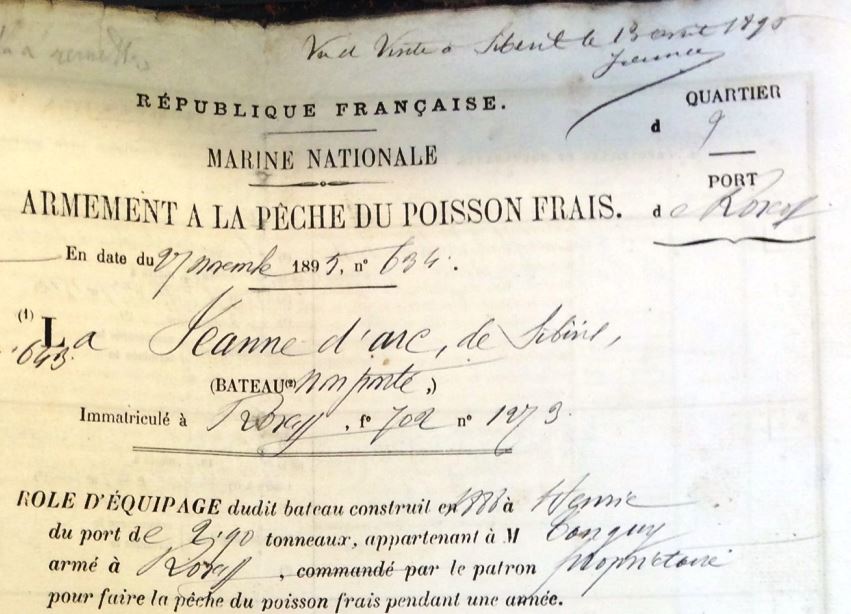 Vu et Visité à Sibiril le 13 avril 189
RÉPUBLIQUE FRANÇAISE.
QUARTIER
d
MARINE NATIONALE
PORT
ARMEMENT A LA PÊCHE DU POISSON FRAIS.
de Roscoff
En date du 27 novembre 1895, n° 634.
(1) La Jeanne d'arc, de Sibiril,
643
(BATEAU(2) non ponté,)
Immatriculé à Roscoff, f° 702 n° 1273.
ROLE D'ÉQUIPAGE dudit bateau construit en à
du port de 2.90 tonneaux, appartenant à M Tanguy
armé à Roscoff, commandé par le patron propriétaire
pour faire la pêche du poisson frais pendant une année.